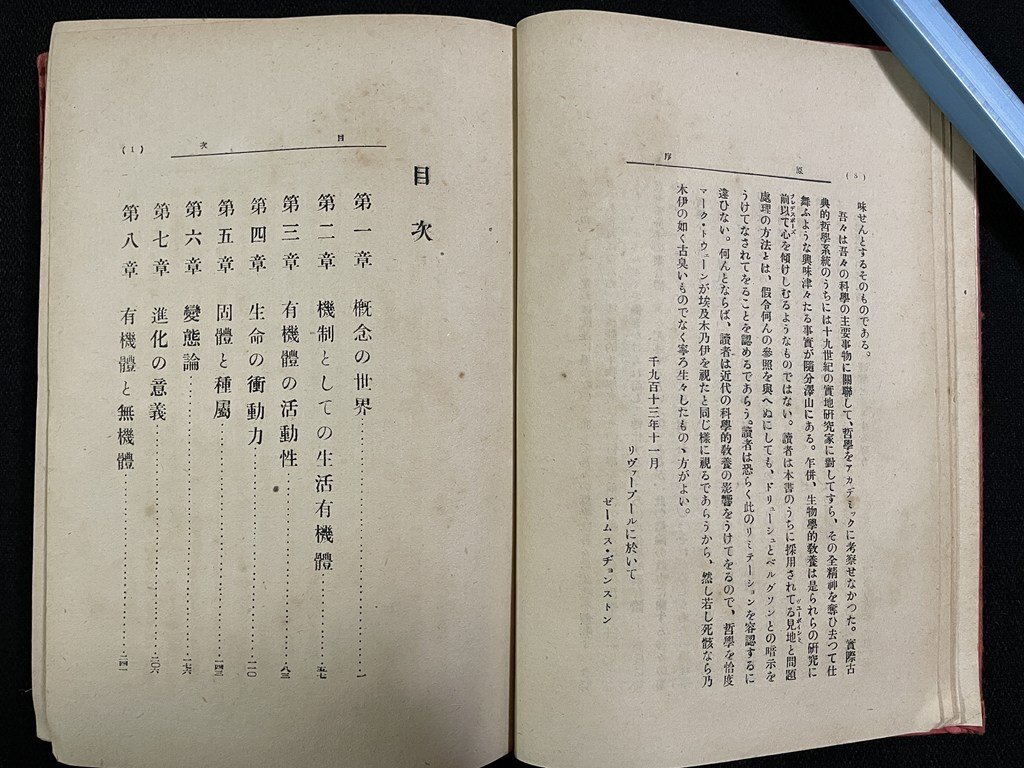 原序
(3)
味せんとするそのものである。
吾々は吾々の科學の主要事物に關聯して、哲學をアカデミックに考察せなかつた。實際古
典的哲學系統のうちには十九世紀の實地研究家に對してすら、その全精神を奪ひ去つて仕
舞ふような興味津々たる事實が隨分澤山にある。乍併、生物學的敎養は是られらの硏究に
前以て心を傾けしむるようなものではない。讀者は本書のうちに採用されてる見地と問題
處理の方法とは、假令何んの參照を與へぬにしても、ドリューシュとベルグソンとの暗示を
うけてなされてをることを認めるであらう。讀者は恐らく此のリミテーションを容認するに
違ひない。何んとならば、讀者は近代の科學的敎養の影響をうけてをるので、哲學を恰度
マーク・トウェーンが埃及木乃伊を視たと同じ樣に視るであらうから、然し若し死骸なら乃
木伊の如く古臭いものでなく寧ろ生々したものゝ方がよい。
千九百十三年十一月
リヴァープールに於いて
ゼームス・ヂョンストン
目次
(1)
目次
第一章 概念の世界……一
第二章 機制としての生活有機體……五七
第三章 有機體の活動性……八三
第四章 生命の衝動力……一二〇
第五章 固體と種屬……一四三
第六章 變態論……一七六
第七章 進化の意義……二〇六
第八章 有機體と無機體……二四一